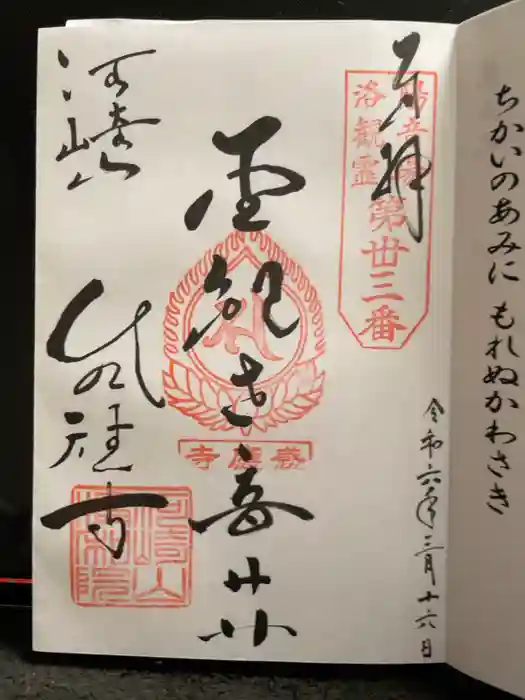 ちかいのあみに もれぬかわさき
奉拝
洛陽観音霊場
第卅三番
令和六年三月十六日
聖観世音菩薩
感應寺
河崎山